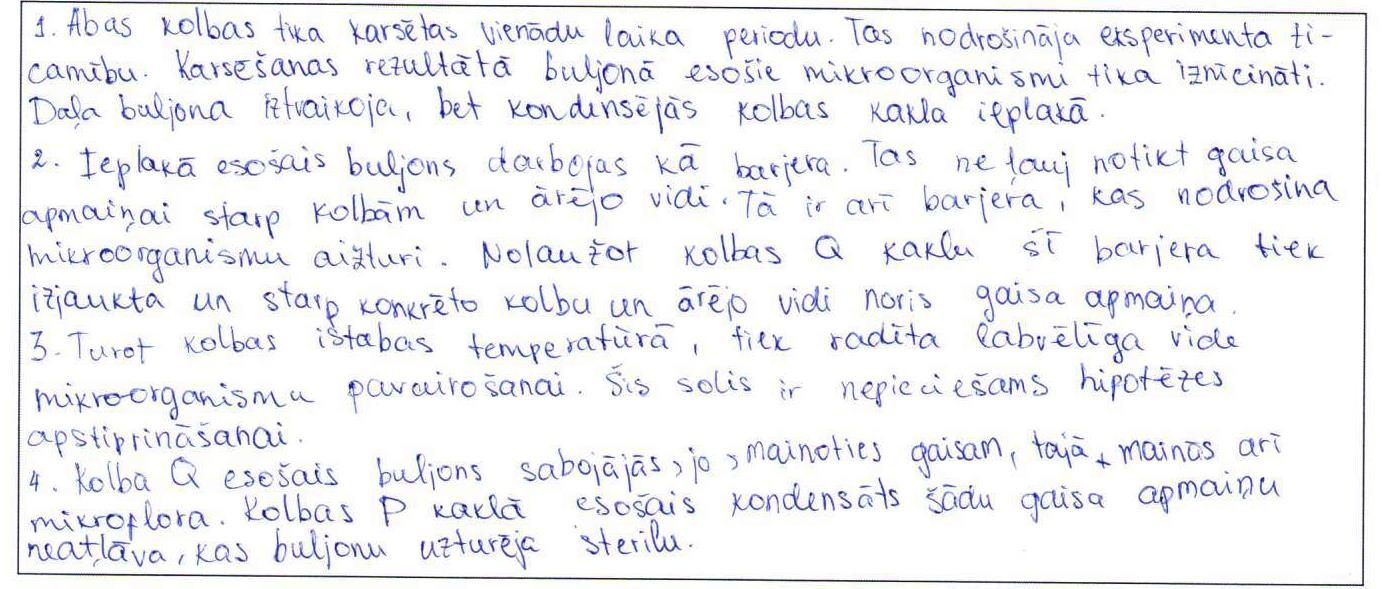 1. Abas kolbas tika karsētas vienādu laika periodu. Tas nodrošināja eksperimenta ti-
camību. Karsēšanas rezultātā buljonā esošie mikroorganismi tika iznīcināti.
Daļa buljona iztvaikoja, bet kondinsējās kolbas kakla ieplakā.
2. Ieplakā esošais buljons darbojas kā barjera. Tas ne ļauj notikt gaisa
apmaiņai starp kolbām un ārējo vidi. Tā ir arī barjera, kas nodrošina
mikroorganismu aizturi. Nolaužot kolbas Q kaklu šī barjera tiek
izjaukta un starp konkrēto kolbu un ārējo vidi noris gaisa apmaiņa.
3. Turot kolbas istabas temperatūrā, tiek radīta labvēlīga vide
mikroorganismu pavairošanai. Šis solis ir nepieciešams hipotēzes
apstiprināšanai.
4. Kolbā Q esošais buljons sabojājās, jo, mainoties gaisam, tajā mainās arī
mikroflora. Kolbas P kaklā esošais kondensāts šādu gaisa apmaiņu
neatļāva, kas buljonu uzturēja sterilu.